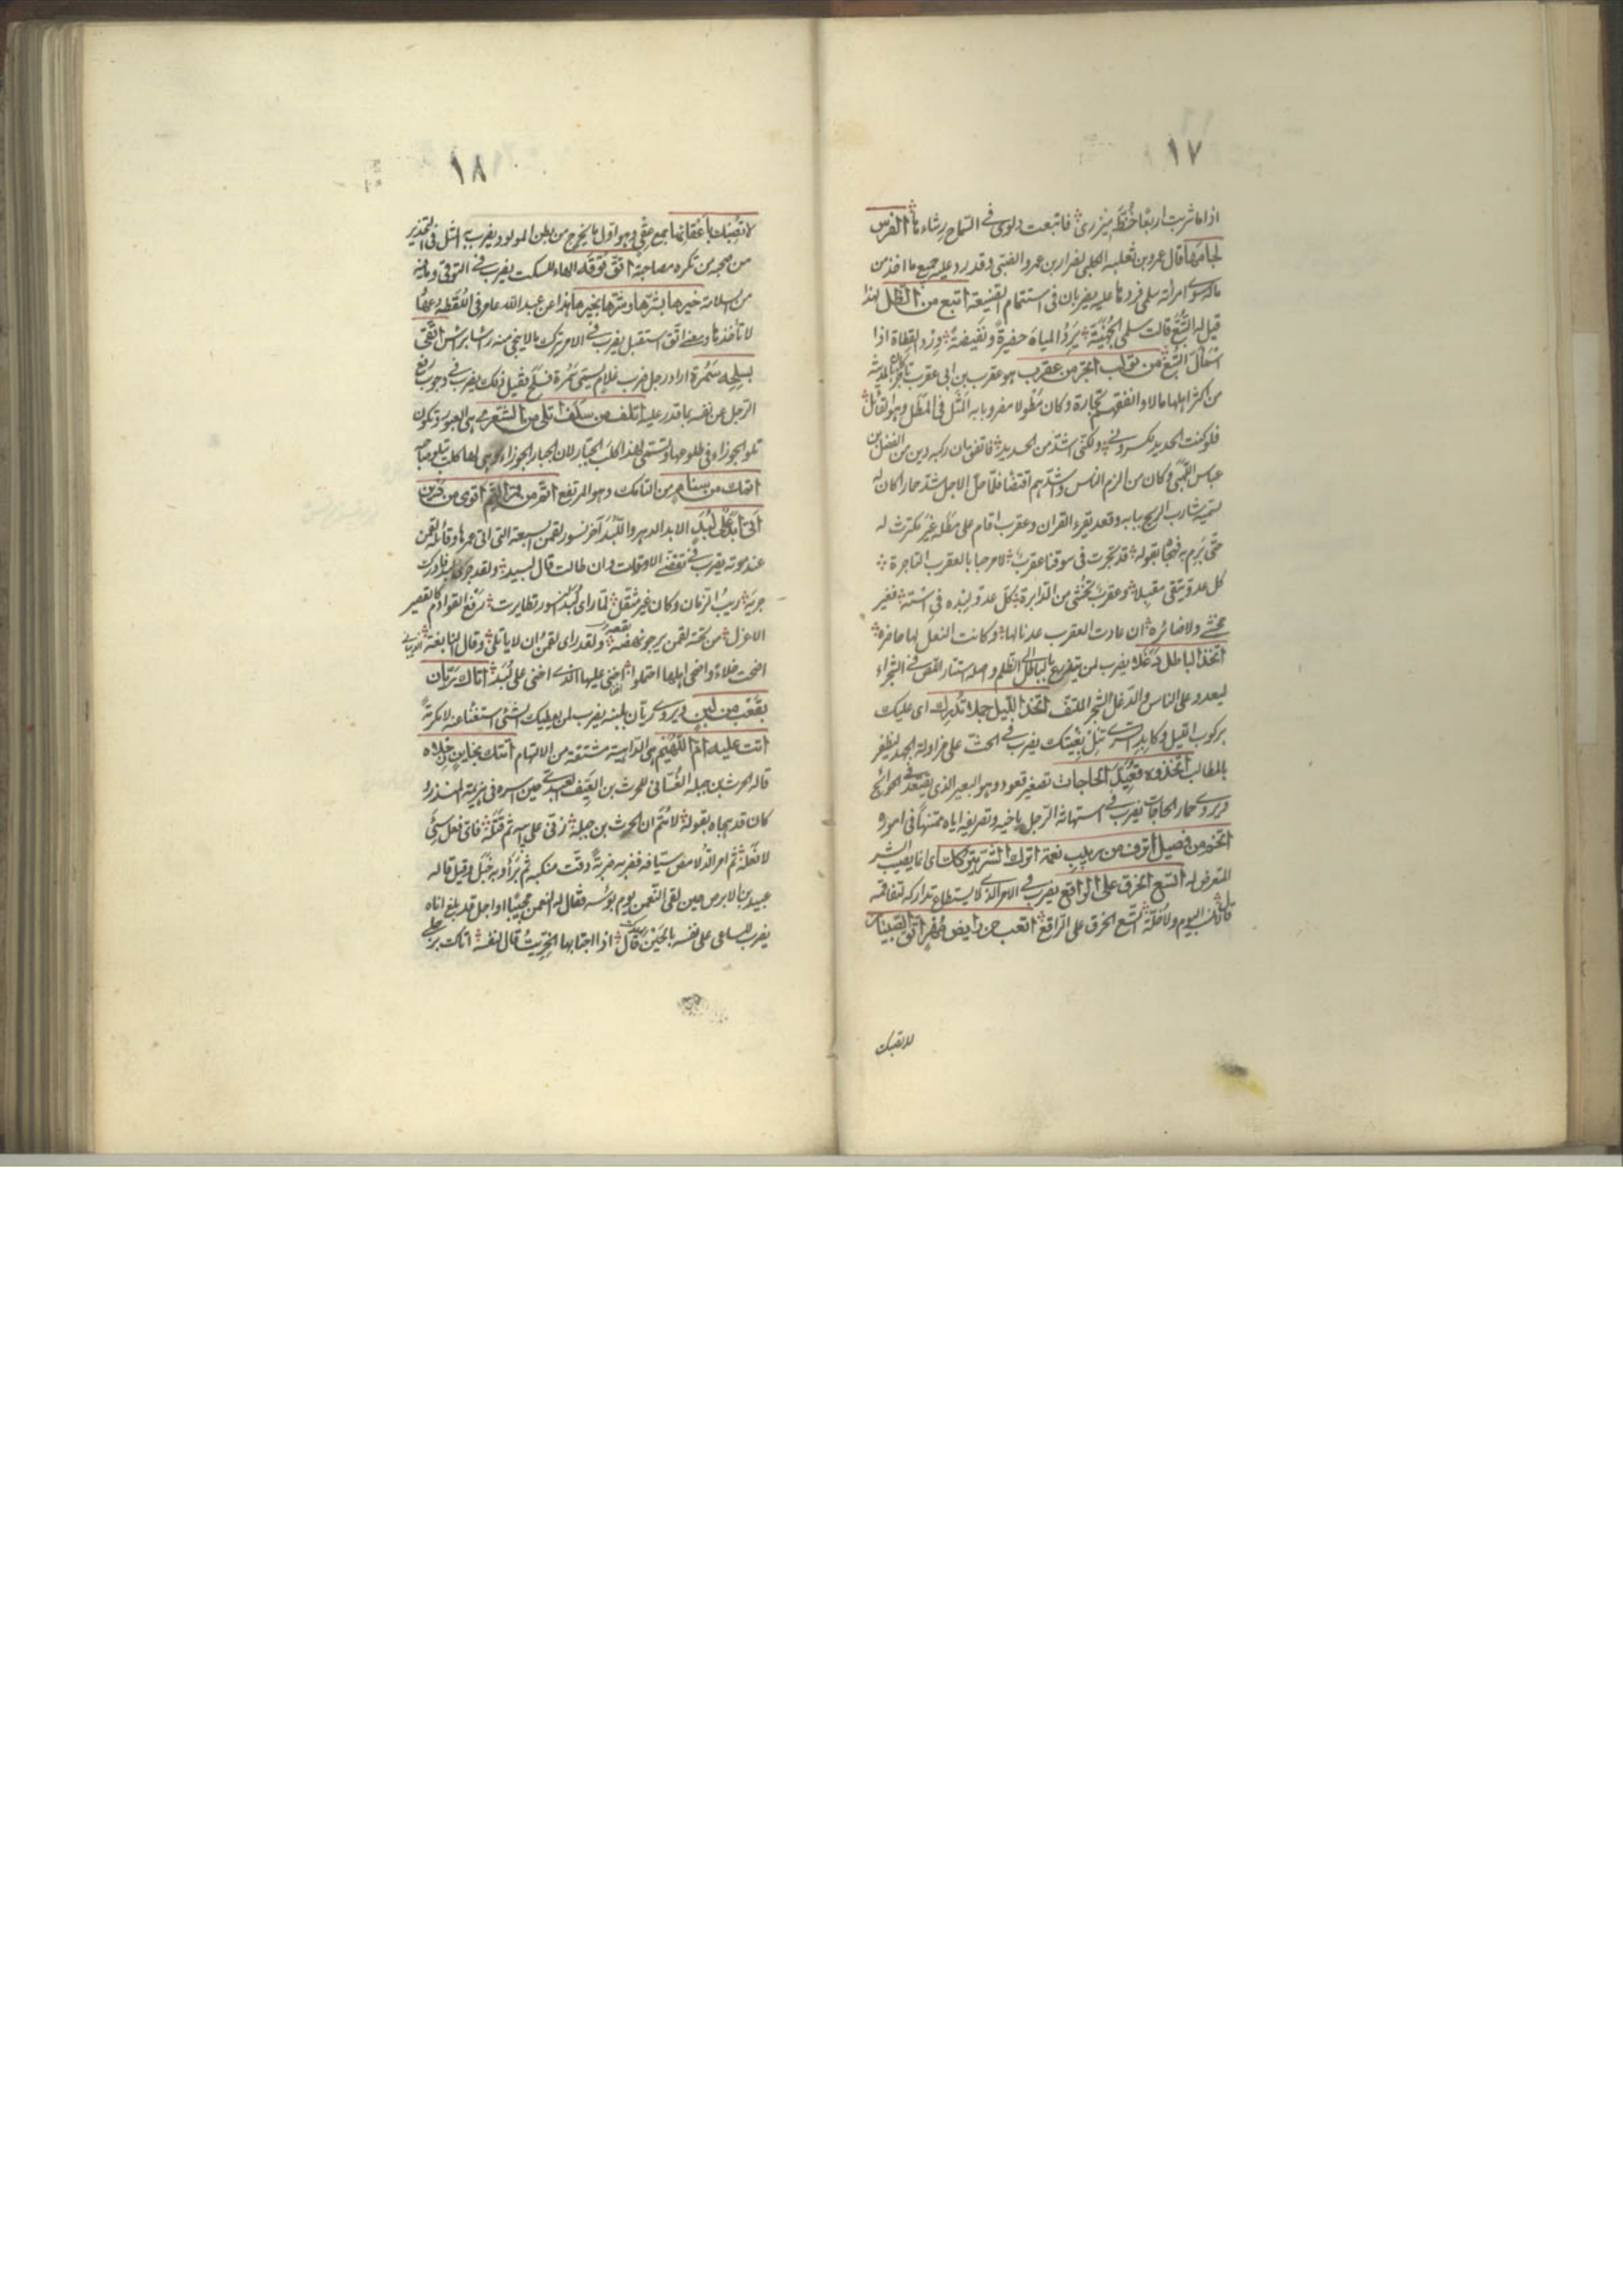 ١٧
اذا ما شربت اربعا خُطّ ميزرى فاتبعت دلوى فى السماح رشاءها الفرس
لجامها قال عمرو بن ثعلبه الكلبى لضرار بن عمرو الضبى وقد رد عليه جميع ما اخذ من
ماله سوى امرأته سلمى فردها عليه يضربان فى استتمام الصنيعة اتبع من الظل لهذا
قيل له التُّبَّع قالت سلمى الجُهَنِيّة يَرِدُ المياه حضيرةً ونفيضةً وِرْد القطاة اذا
اسمأَلّ التُّبَّع من تولب اتجر من عقرب هو عقرب بن ابى عقرب تاجر بالمدينة
من اكثر اهلها مالا وانفقهم تجارة وكان مَطُولا مضروبا به المثل فى المطل وهو القائل
فلو كنت الحديد لكسرونى ولكنى اشدّ من الحديد فاتفق ان ركبه دين من الفضل بن
عباس اللهبى وكان من الزم الناس واشدهم اقتضاءً فلما حل الاجل شد حمارا كان له
يسميه شارب الريح ببابه وقعد يقرء القران وعقرب اقام على مطله غير مكترث له
حتى برم به فهجاه بقوله قد تجرت فى سوقنا عقرب لا مرحبا بالعقرب التاجرة
كل عدو يتقى مقبلا وعقرب تخشى من الدابرة كل عدو كيده فى استه فغير
مخشى ولا ضائره ان عادت العقرب عدنا لها وكانت النعل لها حاضره
اتخذ الباطل دَغَلا يضرب لمن يتذرع بالباطل الى الظلم واصله استتار اللص فى الشجراء
ليعدو على الناس والدغل الشجر الملتف اتخذ الليل جملا تُدرك اى عليك
بركوب الليل وكابد السرى تنل بغيتك يضرب فى الحث على مزاولة الجهد ليظفر
بالمطالب اتخذوه قُعَيِّدَ الحاجات تصغير قعود وهو البعير الذى يقتعد فى الحوائج
ويروى حمار الحاجات يضرب فى استهانة الرجل باخيه وتصريفه اياه ممتهنا فى اموره
اتخم من فصيل اترف من ربيب نعمة اترك الشر يتركك اى انما يصيب الشر
المتعرض له اتسع الخرق على الراقع يضرب فى الامر الذى لا يستطاع تداركه لتفاقمه
قال لا نسب اليوم ولا خلة اتسع الخرق على الراقع اتعب من رايض مُهر اتق الصبيان
لا تصبك
١٨
لا تصبك باعقائها جمع عقى وهو اول ما يخرج من بطن المولود يضرب به المثل فى التحذير
من صحبه من تكره مصاحبة اتق توقه الهاء للسكت يضرب فى التوقى وما فيه
من السلامة خيرها بشرها وشرها بخيرها هذا عن عبد الله عامر فى اللقطه
لا تأخذها اتق استقبل يضرب فى الامر ترك ما لا ينجى منه اتقى
بسلحه سَمُرة اراد رجل ضرب غلام يسمى سَمُرة فسلح فقيل ذلك يضرب فى وجوب رفع
الرجل عن نفسه بما قدر عليه اتلف من سلف اتلى من الشعرى هى العبور وتكون
تلو الجوزاء فى طلوعها وتسمى لهذا كلب الجبار لان الجبار الجوزاء وهى لها كلب يتبع صاحبه
اتمك من سنام من التامك وهو المرتفع اتم من قمر التم اتوى من دين
اتى ابد على لُبَد الابد الدهر واللبد آخر نسور لقمن السبعة التى اتى عمرها وقائله لقمن
عند موته يضرب فى تقضى الاوقات وان طالت قال لبيد ولقد جرى لبد فادرك
جريه ريب الزمان وكان غير مثقل لما راى لُبَد النسور تطايرت رفع القوادم كالفقير
الاعزل من تحته لقمن يرجو نهضه ولقد راى لقمن ان لا ياتلى وقال النابغة الذبيانى
اضحت خلاءً واضحى اهلها احتملوا اخنى عليها الذى اخنى على لُبَد اتاك ريّان
بقَعْب من لبن ويروى ريان بلبنه يضرب لمن يعطيك الشئ استغناءً عنه لا تكرمةً
اتت عليه ام اللُّهَيْم هى الداهية مشتقة من الالتهام اتتك بحاين رجلاه
قاله الحرث بن جبلة الغسانى للحرث بن العيف العبدى حين اسره فى هزيمة المنذر
كان قد هجاه بقوله لا هُمّ ان الحرث بن جبلة زنى على ابيه ثم قتله فاى فعل سيئ
لا فعله ثم امر الدلامص سيافه فضربه ضربةً دقت منكبه ثم برأ وبه خبل وقيل قاله
عبيد بن الابرص حين لقى النعمن يوم بؤسه فقال له النعمن مجيبا او اجل قد بلغ اناه
يضرب للساعى على نفسه بالحين قال اذا اجتابها الخريت قال لنفسه اتاك برجلى